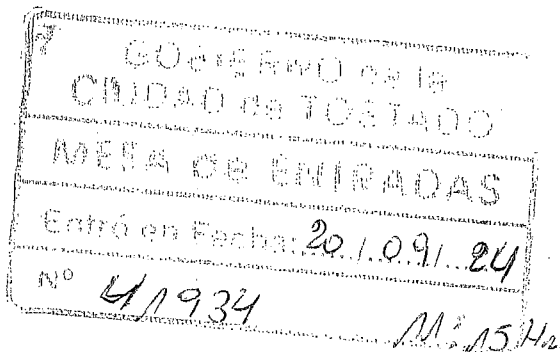 GOBIERNO de la
CIUDAD de TOSTADO
MESA DE ENTRADAS
Entró en Fecha: 20 / 09 / 24
Nº 41934
11:15 Hs